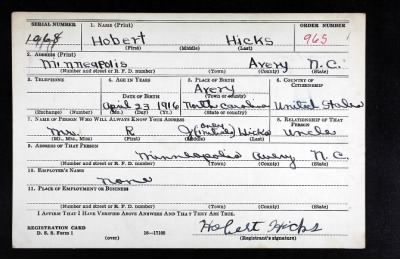 SERIAL NUMBER 1. NAME (Print) ORDER NUMBER
1968 Hobert Hicks 965
(First) (Middle) (Last)
2. ADDRESS (Print)
Minneapolis Avery N.C.
(Number and street or R. F. D. number) (Town) (County) (State)
3. TELEPHONE 4. AGE IN YEARS 5. PLACE OF BIRTH 6. COUNTRY OF CITIZENSHIP
Avery
DATE OF BIRTH (Town or county)
April 23 1916 North Carolina United States
(Exchange) (Number) (Mo.) (Day) (Yr.) (State or country)
7. NAME OF PERSON WHO WILL ALWAYS KNOW YOUR ADDRESS 8. RELATIONSHIP OF THAT PERSON
Mr. R J (only initials) Hicks Uncle
(Mr., Mrs., Miss) (First) (Middle) (Last)
9. ADDRESS OF THAT PERSON
Minneapolis Avery N.C.
(Number and street or R. F. D. number) (Town) (County) (State)
10. EMPLOYER'S NAME
None
11. PLACE OF EMPLOYMENT OR BUSINESS
(Number and street or R. F. D. number) (Town) (County) (State)
I AFFIRM THAT I HAVE VERIFIED ABOVE ANSWERS AND THAT THEY ARE TRUE.
REGISTRATION CARD Hobert Hicks
D. S. S. Form 1 (over) 16—17105 (Registrant's signature)